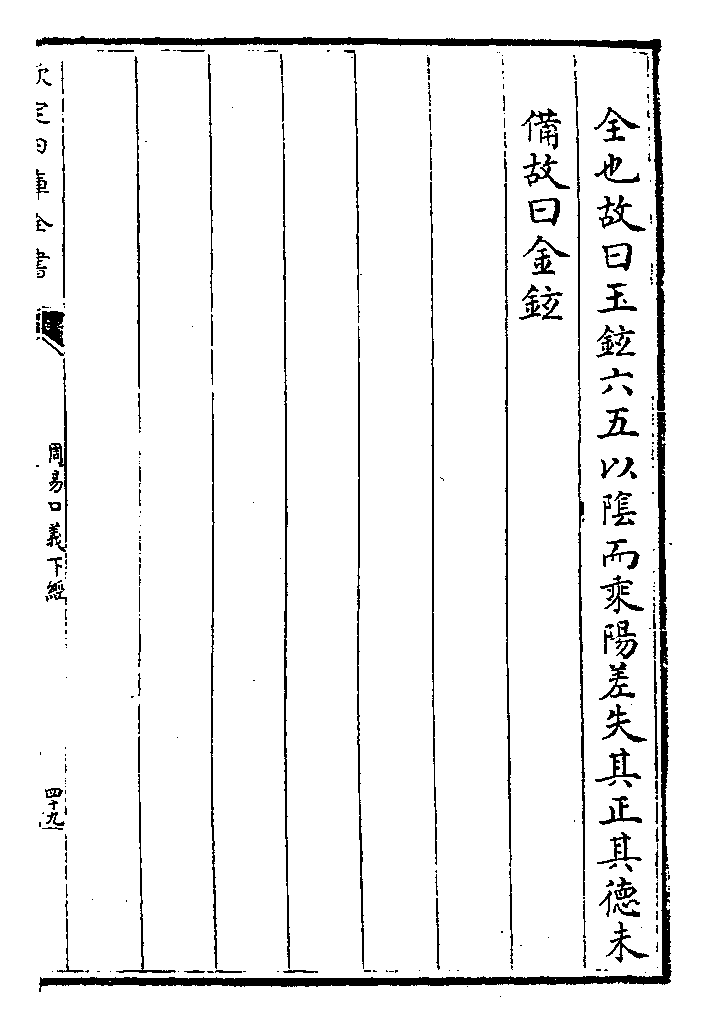 全也故曰玉鉉六五以陰而乘陽差失其正其德未
備故曰金鉉
欽定四庫全書
周易口義下經
四十九